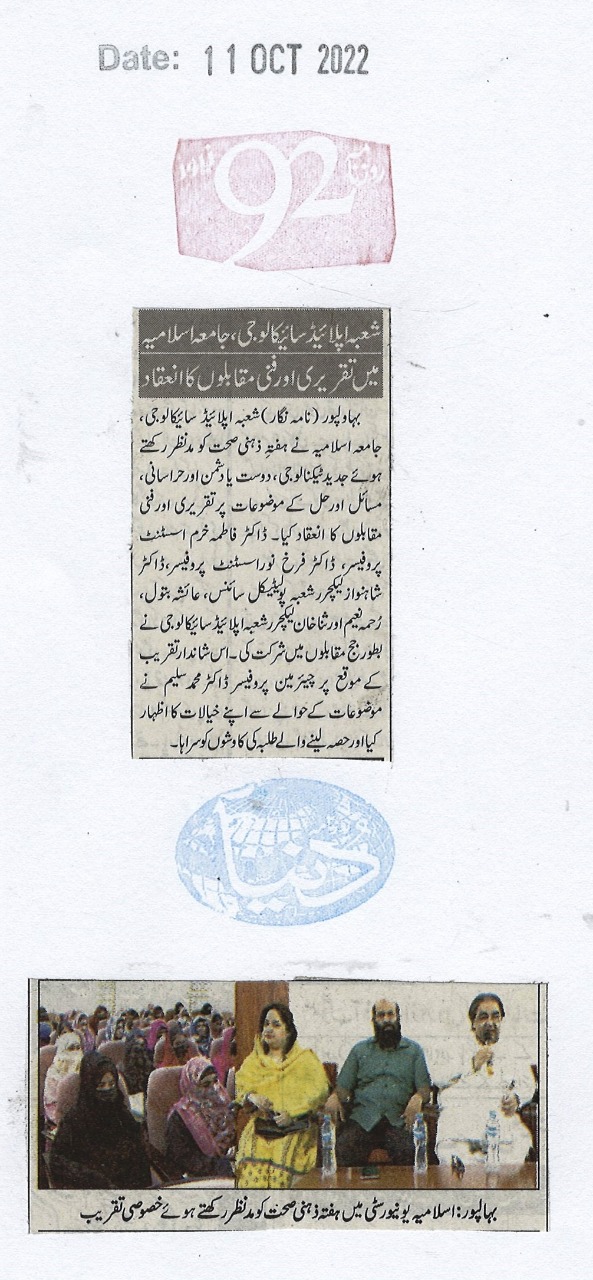 Date: 11 OCT 2022
روزنامہ 92
شعبہ اپلائیڈ سائیکالوجی، جامعہ اسلامیہ
میں تقریری اور فنی مقابلوں کا انعقاد
بہاولپور (نامہ نگار) شعبہ اپلائیڈ سائیکالوجی،
جامعہ اسلامیہ نے ہفتہ ذہنی صحت کو مدنظر رکھتے
ہوئے جدید ٹیکنالوجی، دوست یا دشمن اور حراسانی،
مسائل اور حل کے موضوعات پر تقریری اور فنی
مقابلوں کا انعقاد کیا۔ ڈاکٹر فاطمہ خرم اسسٹنٹ
پروفیسر، ڈاکٹر فرخ نور اسسٹنٹ پروفیسر، ڈاکٹر
شاہنواز لیکچرر شعبہ پولیٹیکل سائنس، عائشہ بتول،
رُحمہ نعیم اور ثنا خان لیکچرر شعبہ اپلائیڈ سائیکالوجی نے
بطور جج مقابلوں میں شرکت کی۔ اس شاندار تقریب
کے موقع پر چیئرمین پروفیسر ڈاکٹر محمد سلیم نے
موضوعات کے حوالے سے اپنے خیالات کا اظہار
کیا اور حصہ لینے والے طلبہ کی کاوشوں کو سراہا۔
دنیا
بہالپور: اسلامیہ یونیورسٹی میں ہفتہ ذہنی صحت کو مدنظر رکھتے ہوئے خصوصی تقریب